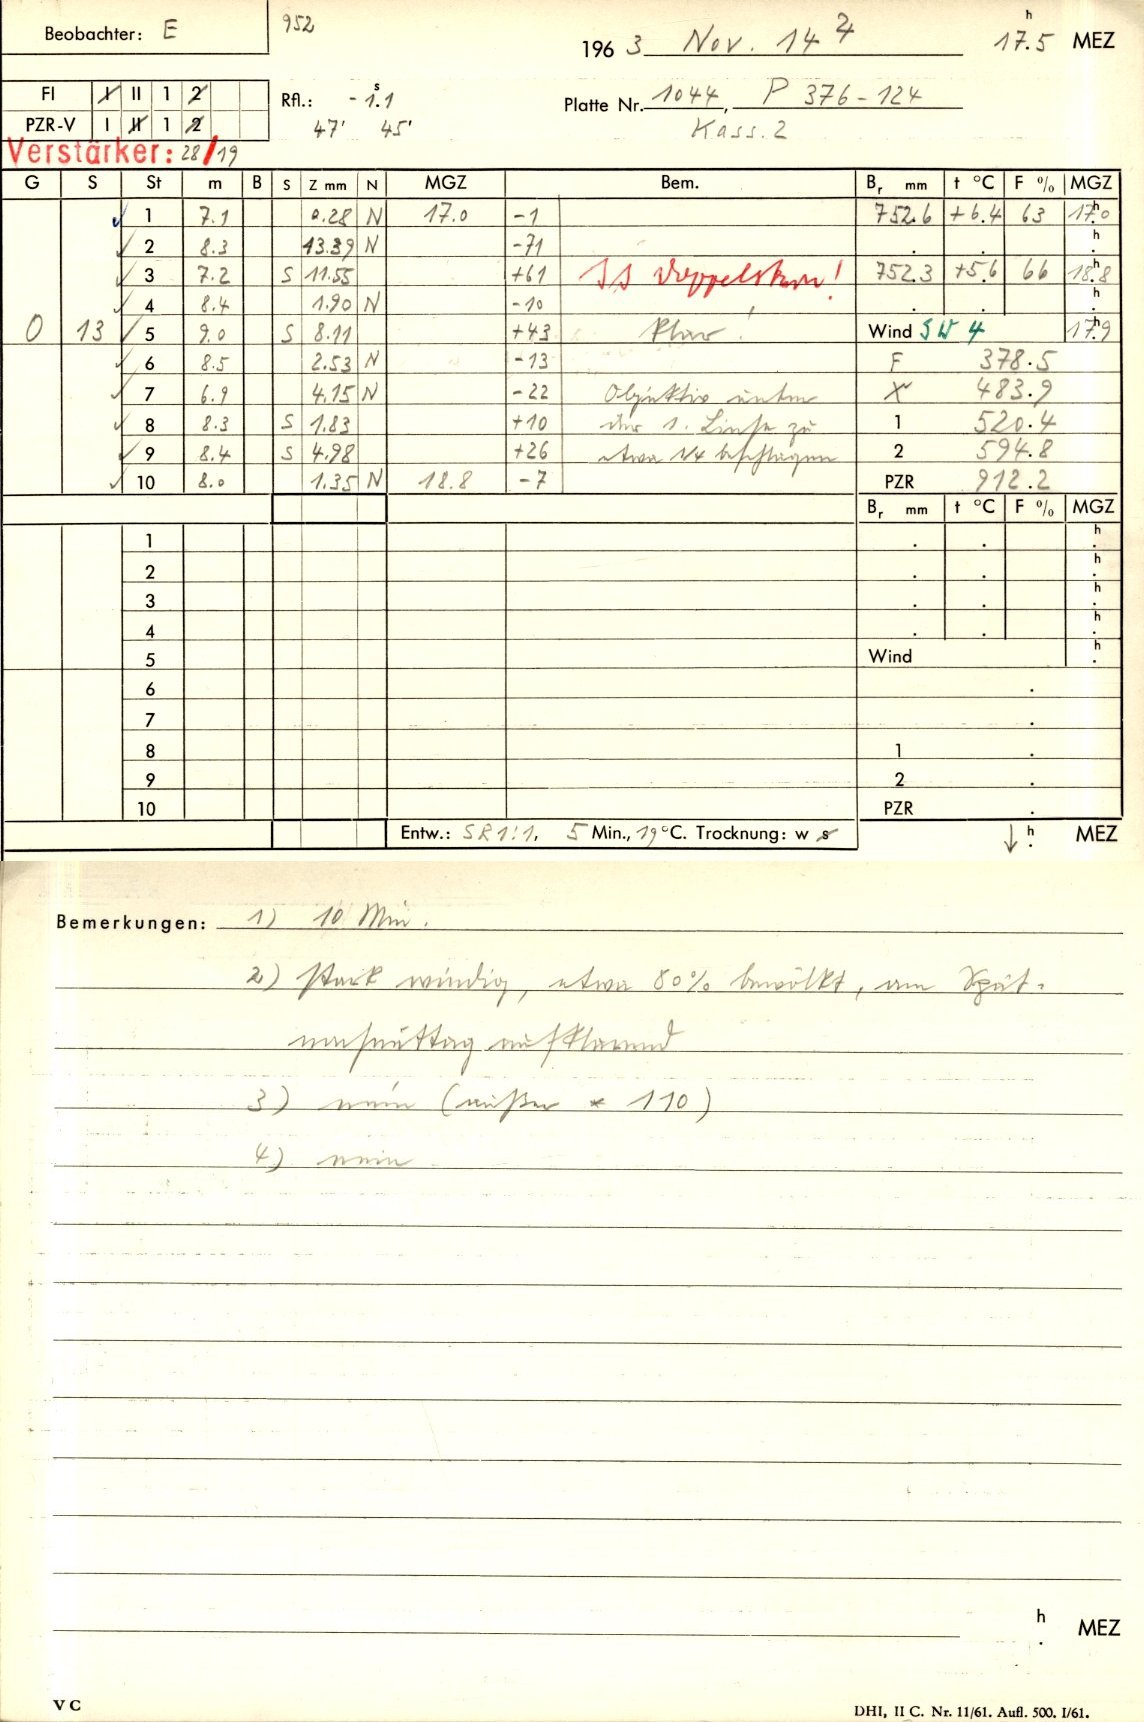 Beobachter: E
952
1963 Nov. 14 2
17.5 h MEZ
FI I II 1 2
PZR-V I II 1 2
Rfl.: -1.1 s
47' 45'
Platte Nr. 1044, P 376-124
Kass. 2
Verstärker: 28/19
G S St m B S Z mm N MGZ Bem. Br mm t °C F % MGZ
1 7.1 0.28 N 17.0 -1 752.6 +6.4 63 17.0 h
2 8.3 13.39 N -71 . . h .
3 7.2 S 11.55 +61 SS Doppelstern! 752.3 +5.6 66 18.8 h
4 8.4 1.90 N -10 . . h .
0 13 5 9.0 S 8.11 +43 klar! Wind SW 4 17.9 h
6 8.5 2.53 N -13 F 378.5
7 6.9 4.15 N -22 Objektiv unten X 483.9
8 8.3 S 1.83 +10 der 1. Linse zu 1 520.4
9 8.4 S 4.98 +26 etwa 1/4 beschlagen 2 594.8
10 8.0 1.35 N 18.8 -7 PZR 912.2
Br mm t °C F % MGZ
1 . . h .
2 . . h .
3 . . h .
4 . . h .
5 Wind h .
6 .
7 .
8 1 .
9 2 .
10 PZR .
Entw.: SR 1:1, 5 Min., 19 °C. Trocknung: w s
h . MEZ
Bemerkungen: 1) 10 Min.
2) stark windig, etwa 80% bewölkt, am Spät-
nachmittag aufklarend
3) nein (außer * 110)
4) nein
h . MEZ
V C
DHI, II C. Nr. 11/61. Aufl. 500. I/61.